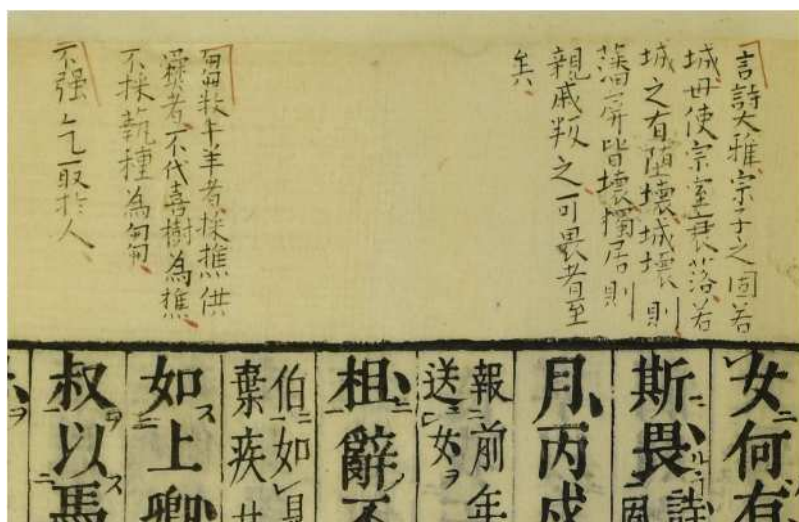 言詩大雅宗子之固若
城毋使宗室衰落若
城之有墮壞城壞則
藩屏皆壞獨居則
親戚叛之可畏者至
矣
芻芻牧牛羊者採樵供
爨者不代喜樹為樵
不採蓺種為芻
不强乞取於人
女ニ何有
斯ニ畏詩
月丙戌
報ニ前年
送女ヲ
相ニ辭不
伯ニ如
棄疾
如スニ上卿
叔以スニ馬